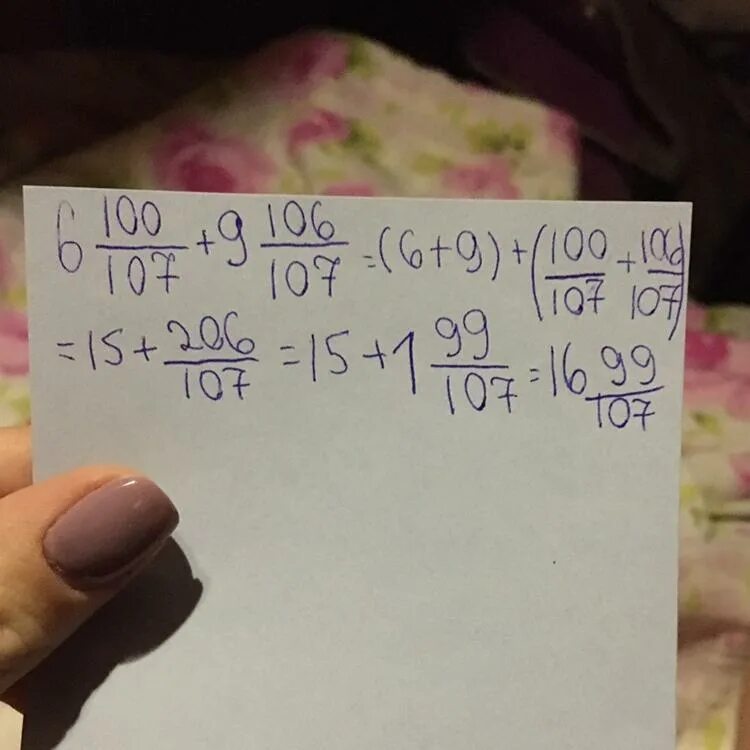 6 100/107 + 9 106/107 = (6+9) + (100/107 + 106/107)
= 15 + 206/107 = 15 + 1 99/107 = 16 99/107